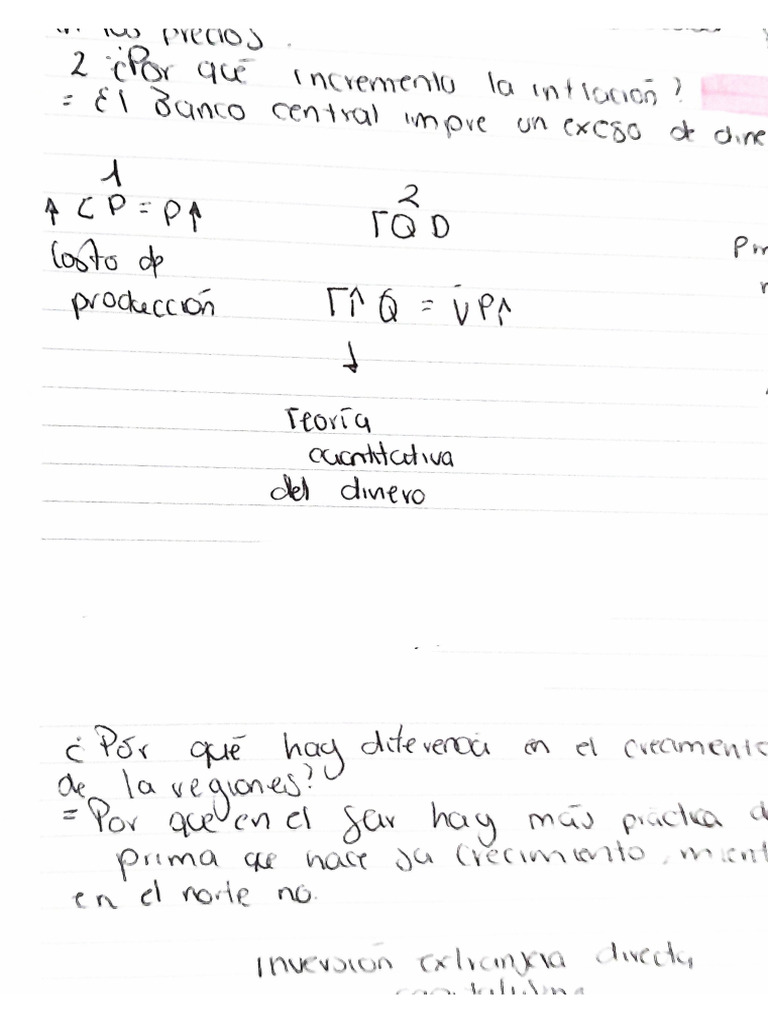 los precios.
2 ¿Por qué incremento la inflación?
= El Banco central impre un exceso de dine
1
↑ C P = P↑
Costo de
producción
2
T Q D
T↑ Q = V P↑
↓
Teoría
cuantitativa
del dinero
¿Pór qué hay diferencia en el crecimiento
de la regiones?
= Por que en el sur hay más práctica d
prima que hace su crecimiento, mient
en el norte no.
Inversión extranjera directa